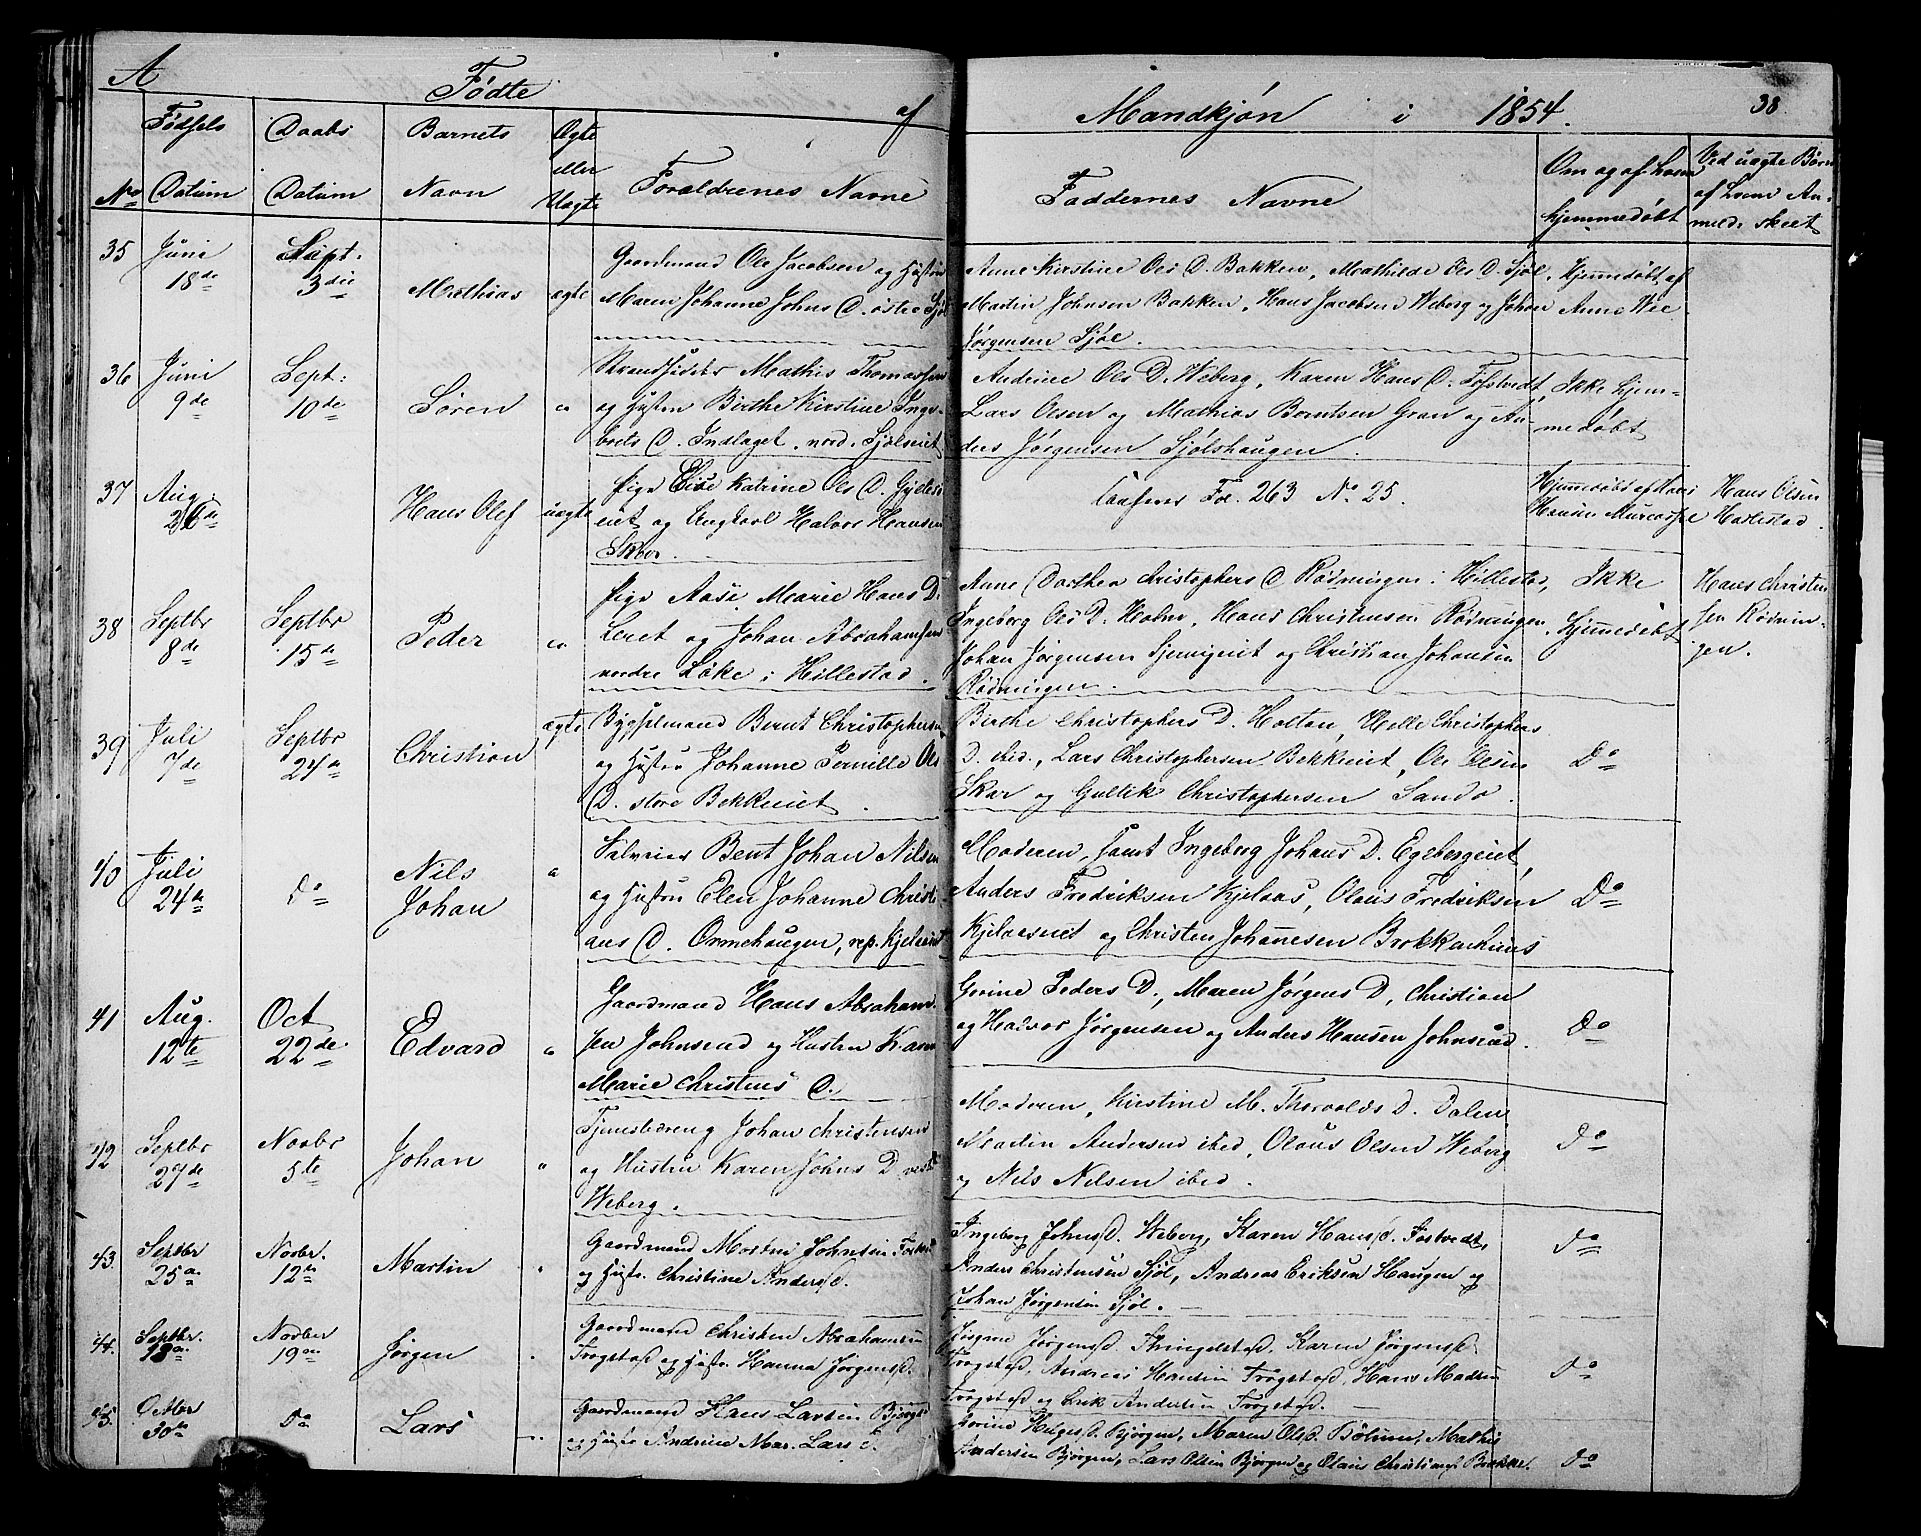 A
Fødte af Mandkjøn i 1854. 38
No
Fødsels Datum
Daabs Datum
Barnets Navn
Ægte eller Uægte
Forældrenes Navne
Faddernes Navne
Om og af hvem hjemmedøbt
Ved uægte Børn af hvem Anmeld. skeet
35
Juni 18de
Sept. 3die
Mathias
ægte
Gaardmand Ole Jacobsen og Hustru
Maren Johanne Johns D. østre Sjøl
Anne Kirstine Ols D. Bakken, Mathilde Ols D. Sjøl,
Martin Johnsen Bakken, Hans Jacobsen Weberg og Johan
Jørgensen Sjøl.
Hjemmedøbt af
Anne Wee
36
Juni 9de
Sept: 10de
Søren
"
Strandsidder Mathis Thomassen
og Hustru Birthe Kirstine Inge-
brets D. Indlaget nord. Sjølseiet
Andrine Ols D. Weberg, Karen Hans D. Fostvedt,
Lars Olsen og Mathias Berntsen Gran og An-
ders Jørgensen Sjølshaugen.
Ikke hjem-
medøbt
37
Aug. 26de
Hans Olef
uægte
Pige Elise Katrine Ols D. Gjelsø
eiet og Ungkarl Halvor Hansen
Skver.
Confereres Fol. 263 No 25.
Hjemmedøbt af
Hansen
Hans Olsen
Harlestad.
38
Septbr 8de
Septbr 15de
Peder
"
Pige Aase Marie Hans D.
Leret og Johan Abrahamsen
nordre Løke i Hillestad.
Anne Dorthea Christophers D Rødningen i Hillestad,
Ingeborg Ols D. Holm, Hans Christensen Rødningen
Johan Jørgensen Bjerrigeiet og Christian Johansen
Rødningen.
Ikke
Hjemmedøbt
Hans Christen
sen Rødnin-
gen.
39
Juli 7de
Septbr 24de
Christian
ægte
Bygselmand Bernt Christophersen
og Hustru Johanne Pernille Ols
D. store Bekkeiet.
Birthe Christophers D. Holtan, Helle Christophers
D. ibid., Lars Christophersen Bekkeiet, Ole Olsen
Skar og Gullik Christophersen Sando.
Do
40
Juli 24de
Do
Nils
Johan
"
Selveier Bent Johan Nilsen
og Hustru Elen Johanne Christi-
ans D. Ormehaugen, rep. Kjelaaseiet
Moderen, samt Ingeborg Johans D. Egebergeiet,
Anders Fredriksen Kjelaas, Olaus Fredriksen
Kjelaaseiet og Christen Johanesen Brekkeahuus
Do
41
Aug. 12te
Oct 22de
Edvard
"
Gaardmand Hans Abraham-
sen Johnsrud og Hustru Karen
Marie Christens D.
Gorine Peders D., Maren Jørgens D, Christian
og Halvor Jørgensen og Anders Hansen Johnsrud.
Do
42
Septbr 27de
Novbr 5te
Johan
"
Tjenestedreng Johan Christensen
og Hustru Karen Johns D vest
Weberg.
Moderen, Kirstine M. Thorvalds D. Dalen
Martin Andersen ibid, Olaus Olsen Weberg
og Nils Nilsen ibid.
Do
43.
Septbr 25de
Novbr. 12te
Martin
"
Gaardmand Morten Johnsen Fostvedt
og Hustr. Christine Anders D.
Ingeborg Johns D. Weberg, Karen Hans D. Fostvedt,
Anders Christensen Sjøl, Andreas Eriksen Haugen og
Johan Jørgensen Sjøl.
Do
44.
Septbr. 18de
Novber 19de
Jørgen
"
Gaardmand Christen Abrahamsen
Trogstad og Hustr. Hanna Jørgens D.
Jørgine Jørgens D. Thingelstad, Karen Jørgens D
Trogstad, Andreas Hansen Trogstad, Hans Madsen
Trogstad og Erik Andersen Trogstad.
Do
45.
Octber 30te
Do
Lars
"
Gaardmand Hans Larsen Bjørgen
og Hustr Andrine Mar. Lars D.
Gorine Helges D. Bjørgen, Maren Ols D. Bølum, Mathis
Andersen Bjørgen, Lars Olsen Bjørgen og Olaus Christians. Brekke.
Do